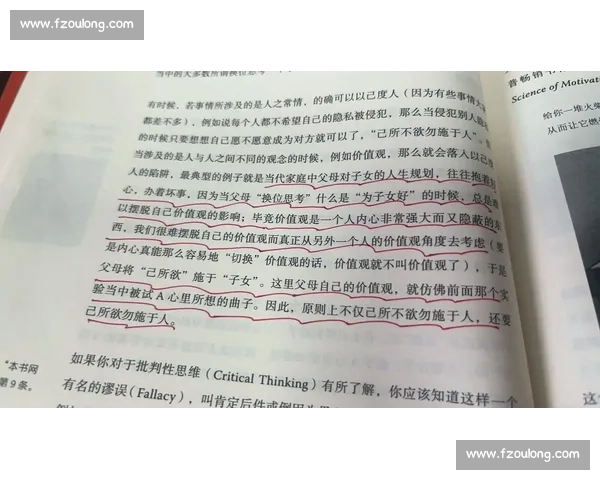 www.fzoulong.com
当中的大多数所谓换位思考
有时候，若事情所涉及的是人之常情，的确可以以己度人（因为有些事情大
都差不多），例如说每个人都不希望自己的隐私被侵犯，那么当侵犯别人隐
的时候只要想想自己愿不愿意成为对方就可以了，“己所不欲勿施于人”。
当涉及的是人与人之间不同的观念的时候，例如价值观，那么就会落入以己度
人的陷阱，最典型的例子就是当代家庭中父母对子女的人生规划，往往抱着好
心，办着坏事，因为当父母“换位思考”什么是“为子女好”的时候，总是难
以摆脱自己价值观的影响；毕竟价值观是一个人内心非常强大而又隐蔽的东
西，我们很难摆脱自己的价值观而真正从另外一个人的价值观角度去考虑（要
是内心真能那么容易地“切换”价值观的话，价值观就不叫价值观了），于是
父母将“己所欲”施于“子女”。这里父母自己的价值观，就仿佛前面那个实
验当中被试A心里所想的曲子。因此，原则上不仅己所不欲勿施于人，还要
己所欲勿施于人。
如果你对于批判性思维（Critical Thinking）有所了解，你应该知道这样一个
有名的谬误（Fallacy），叫肯定后件或倒因为果
“本书网
第9条。
普畅销书
Science of Motivat
给你一堆火柴
从而让它燃
这个
www.fzoulong.com